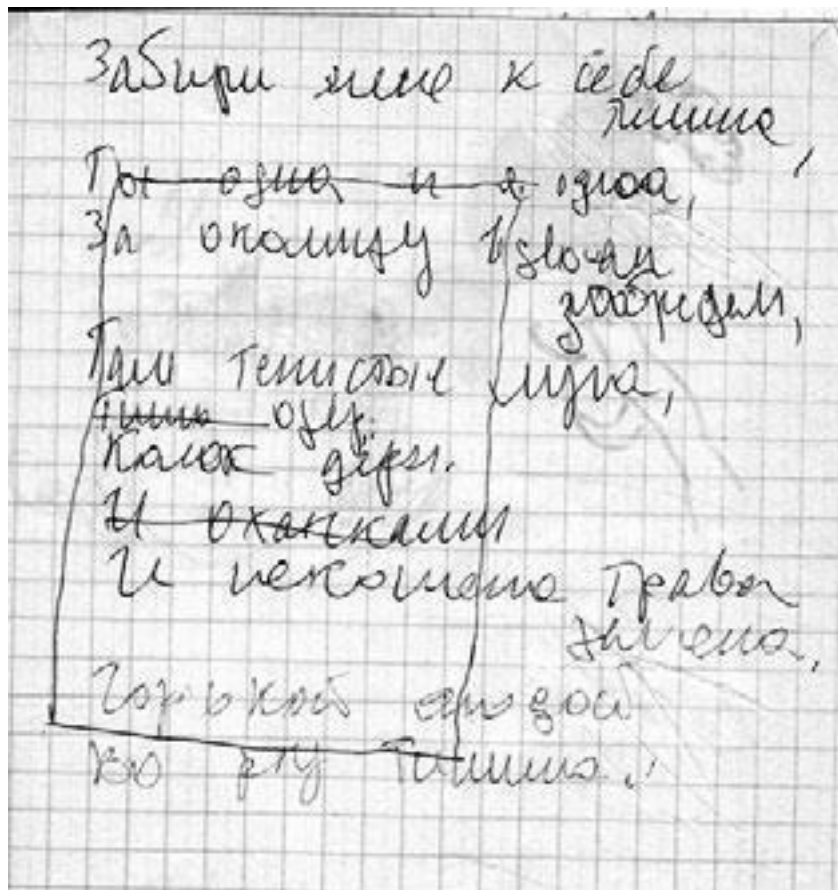 Забири мене к себе
тишина,
Ты одна и я одна,
За околицу вдвоём
забредём,
Там тенистые луга,
Тишь озёр.
Колок
И оханками
И некошена трава
зелена,
Горькой ягодой
во рту Тишина.